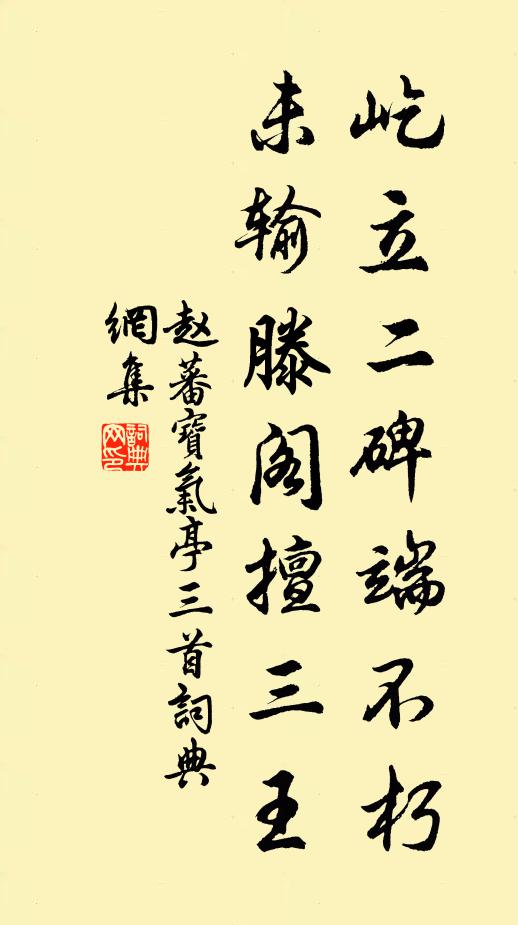 屹立二碑端不朽
未输滕阁擅三王
赵蕃寶氣亭三首詞典
網集
詞典